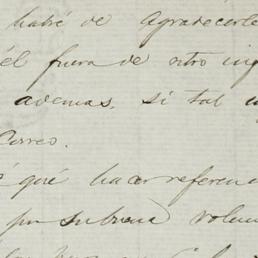 habré de Agradecerle
él fuera de otro
ademas, si tal
Correo.
qué hacer referenc
por su buena volun